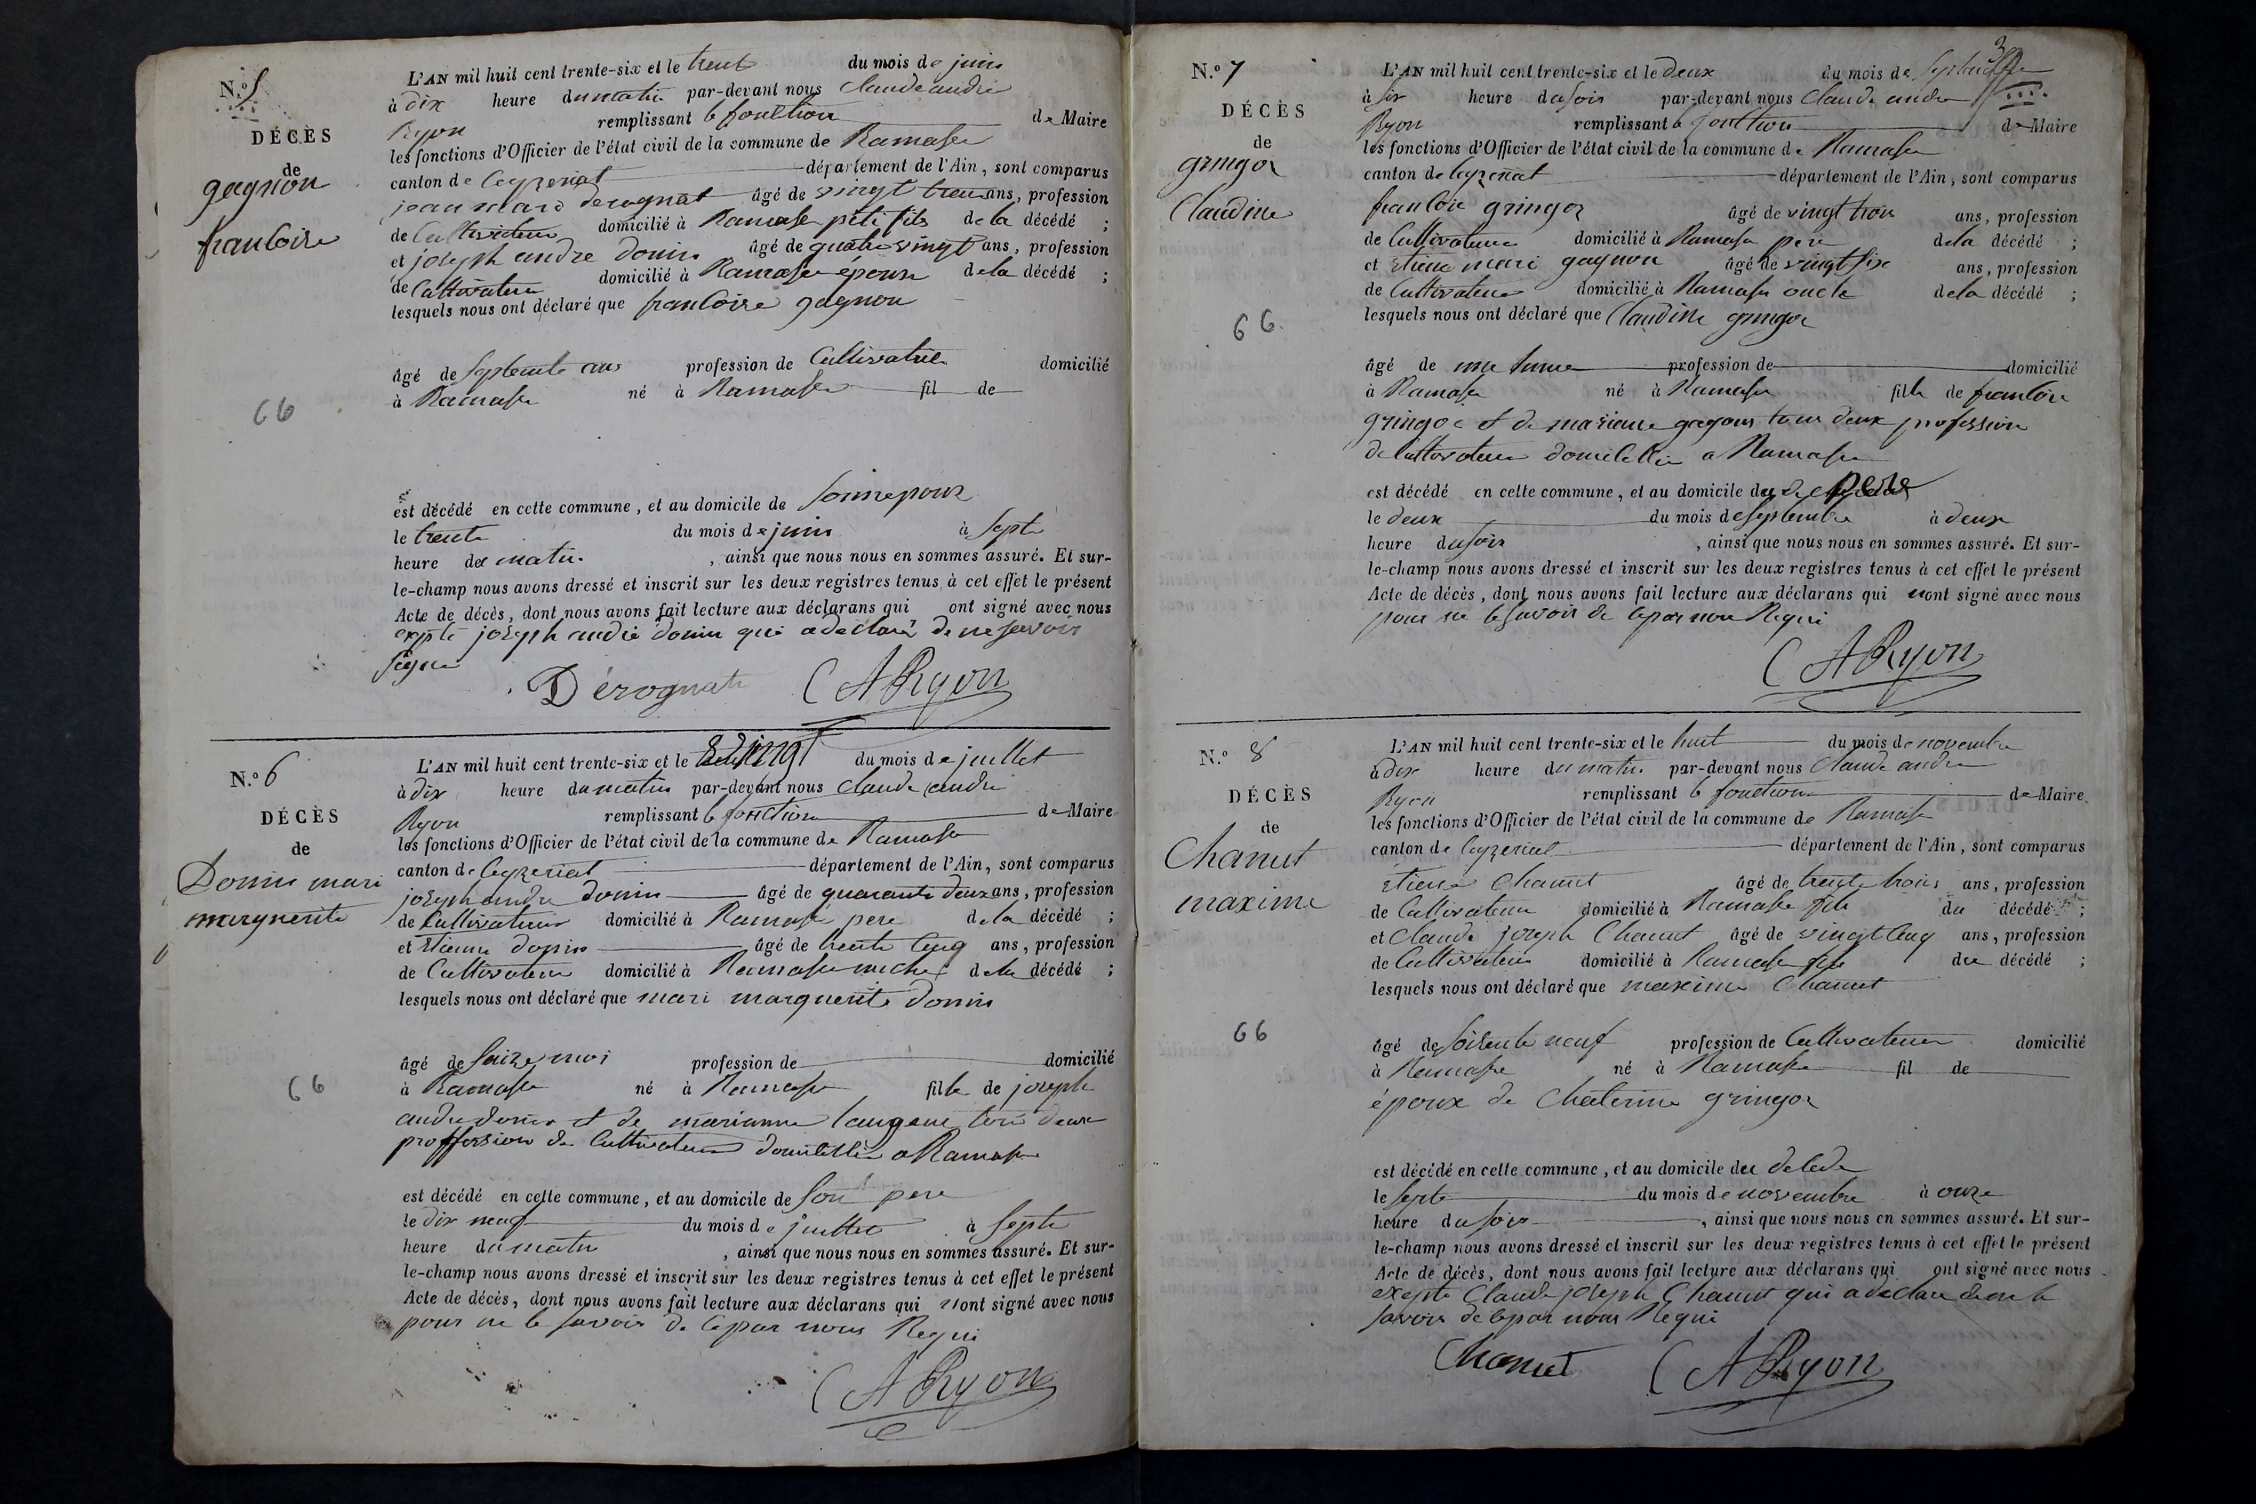 N.º 5
DÉCÈS
de
gagnon
francoise
66
L'AN mil huit cent trente-six et le trente du mois de juin
à dix heure du matin par-devant nous Claude andré
Ryon remplissant le fonction de Maire
les fonctions d'Officier de l'état civil de la commune de Ramasse
canton de Ceyzeriat département de l'Ain, sont comparus
jean marie derognat âgé de vingt ans, profession
de Cultivateur domicilié à Ramasse petit fils de la décédé ;
et joseph andre donin âgé de quatre vingt ans, profession
de Cultivateur domicilié à Ramasse épouse de la décédé ;
lesquels nous ont déclaré que francoise gagnon
âgé de septente ans profession de Cultivatrice domicilié
à Ramasse né à Ramasse fil de
est décédé en cette commune, et au domicile de
le trente du mois de juin à septe
heure de matin, ainsi que nous nous en sommes assuré. Et sur-
le-champ nous avons dressé et inscrit sur les deux registres tenus à cet effet le présent
Acte de décès, dont nous avons fait lecture aux déclarans qui ont signé avec nous
exepté joseph andré donin qui a déclaré de ne savoir
signe
Dérognat CARyon
N.º 6
DÉCÈS
de
Donin mari
marguerite
66
L'AN mil huit cent trente-six et le vingt du mois de juillet
à dix heure du matin par-devant nous Claude andré
Ryon remplissant le fonction de Maire
les fonctions d'Officier de l'état civil de la commune de Ramasse
canton de Ceyzeriat département de l'Ain, sont comparus
joseph andre donin âgé de quarante deux ans, profession
de Cultivateur domicilié à Ramasse pere de la décédé ;
et Etienne donin âgé de trente cinq ans, profession
de Cultivateur domicilié à Ramasse de la décédé ;
lesquels nous ont déclaré que mari marguerite donin
âgé de saize moi profession de domicilié
à Ramasse né à Ramasse fille de joseph
andre donin et de marianne tous deux
proffession de Cultivateur domicillié a Ramasse
est décédé en cette commune, et au domicile de son pere
le dix neuf du mois de juillet à septe
heure du matin, ainsi que nous nous en sommes assuré. Et sur-
le-champ nous avons dressé et inscrit sur les deux registres tenus à cet effet le présent
Acte de décès, dont nous avons fait lecture aux déclarans qui nont signé avec nous
pour ne le savoir de cepar nous Requi
CARyon
3
N.º 7
DÉCÈS
de
gringoz
Claudine
66
L'AN mil huit cent trente-six et le deux du mois de septembre
à six heure du soir par-devant nous Claude andre
Ryon remplissant le fonction de Maire
les fonctions d'Officier de l'état civil de la commune de Ramasse
canton de Ceyzeriat département de l'Ain, sont comparus
francois gringoz âgé de vingt trois ans, profession
de Cultivateur domicilié à Ramasse pere de la décédé ;
et Etiene mari gagnon âgé de vingt six ans, profession
de Cultivateur domicilié à Ramasse oncle de la décédé ;
lesquels nous ont déclaré que Claudine gringoz
âgé de une profession de domicilié
à Ramasse né à Ramasse fille de francois
gringoz et de mariane gagnon tous deux profession
de Cultivateur domicillié a Ramasse
est décédé en cette commune, et au domicile de pere
le deux du mois de septembre à deux
heure du soir, ainsi que nous nous en sommes assuré. Et sur-
le-champ nous avons dressé et inscrit sur les deux registres tenus à cet effet le présent
Acte de décès, dont nous avons fait lecture aux déclarans qui nont signé avec nous
pour ne le savoir de cepar nous Requi
CARyon
N.º 8
DÉCÈS
de
Chanut
maxime
66
L'AN mil huit cent trente-six et le huit du mois de novembre
à dix heure du matin par-devant nous Claude andre
Ryon remplissant le fonction de Maire
les fonctions d'Officier de l'état civil de la commune de Ramasse
canton de Ceyzeriat département de l'Ain, sont comparus
Etiene Chanut âgé de trente trois ans, profession
de Cultivateur domicilié à Ramasse fils du décédé ;
et Claude joseph Chanut âgé de vingt cinq ans, profession
de Cultivateur domicilié à Ramasse fils du décédé ;
lesquels nous ont déclaré que maxime Chanut
âgé de soisente neuf profession de Cultivateur domicilié
à Ramasse né à Ramasse fil de
époux de Chaterine gringoz
est décédé en cette commune, et au domicile du
le septe du mois de novembre à onze
heure du soir, ainsi que nous nous en sommes assuré. Et sur-
le-champ nous avons dressé et inscrit sur les deux registres tenus à cet effet le présent
Acte de décès, dont nous avons fait lecture aux déclarans qui ont signé avec nous
exepté Claude joseph Chanut qui a declare de ne le
savoir de cepar nous Requi
Chanut CARyon